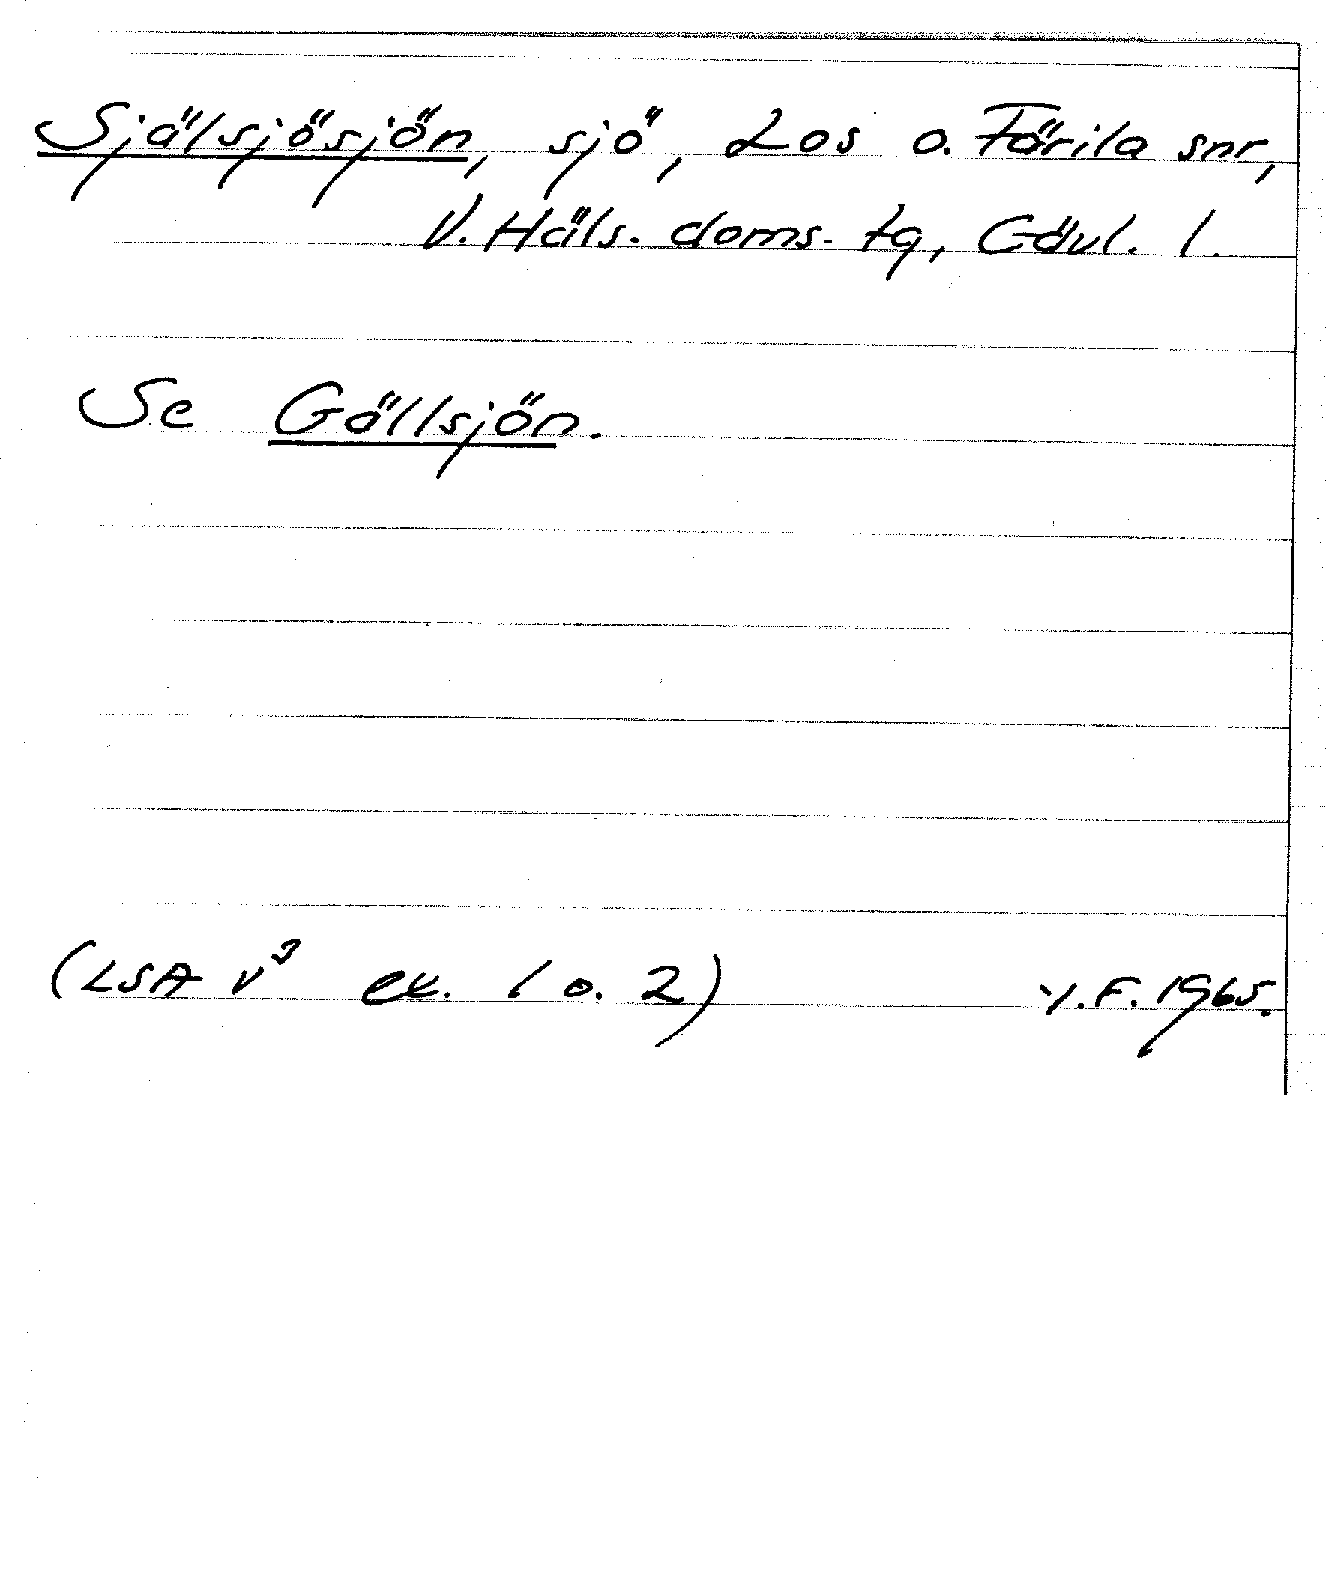 Själsjösjön, sjö, Los o. Färila snr,
V. Häls. doms. tg, Gävl. l.
Se Gällsjön.
(LSA V³ ex. 1 o. 2) Y.F. 1965.